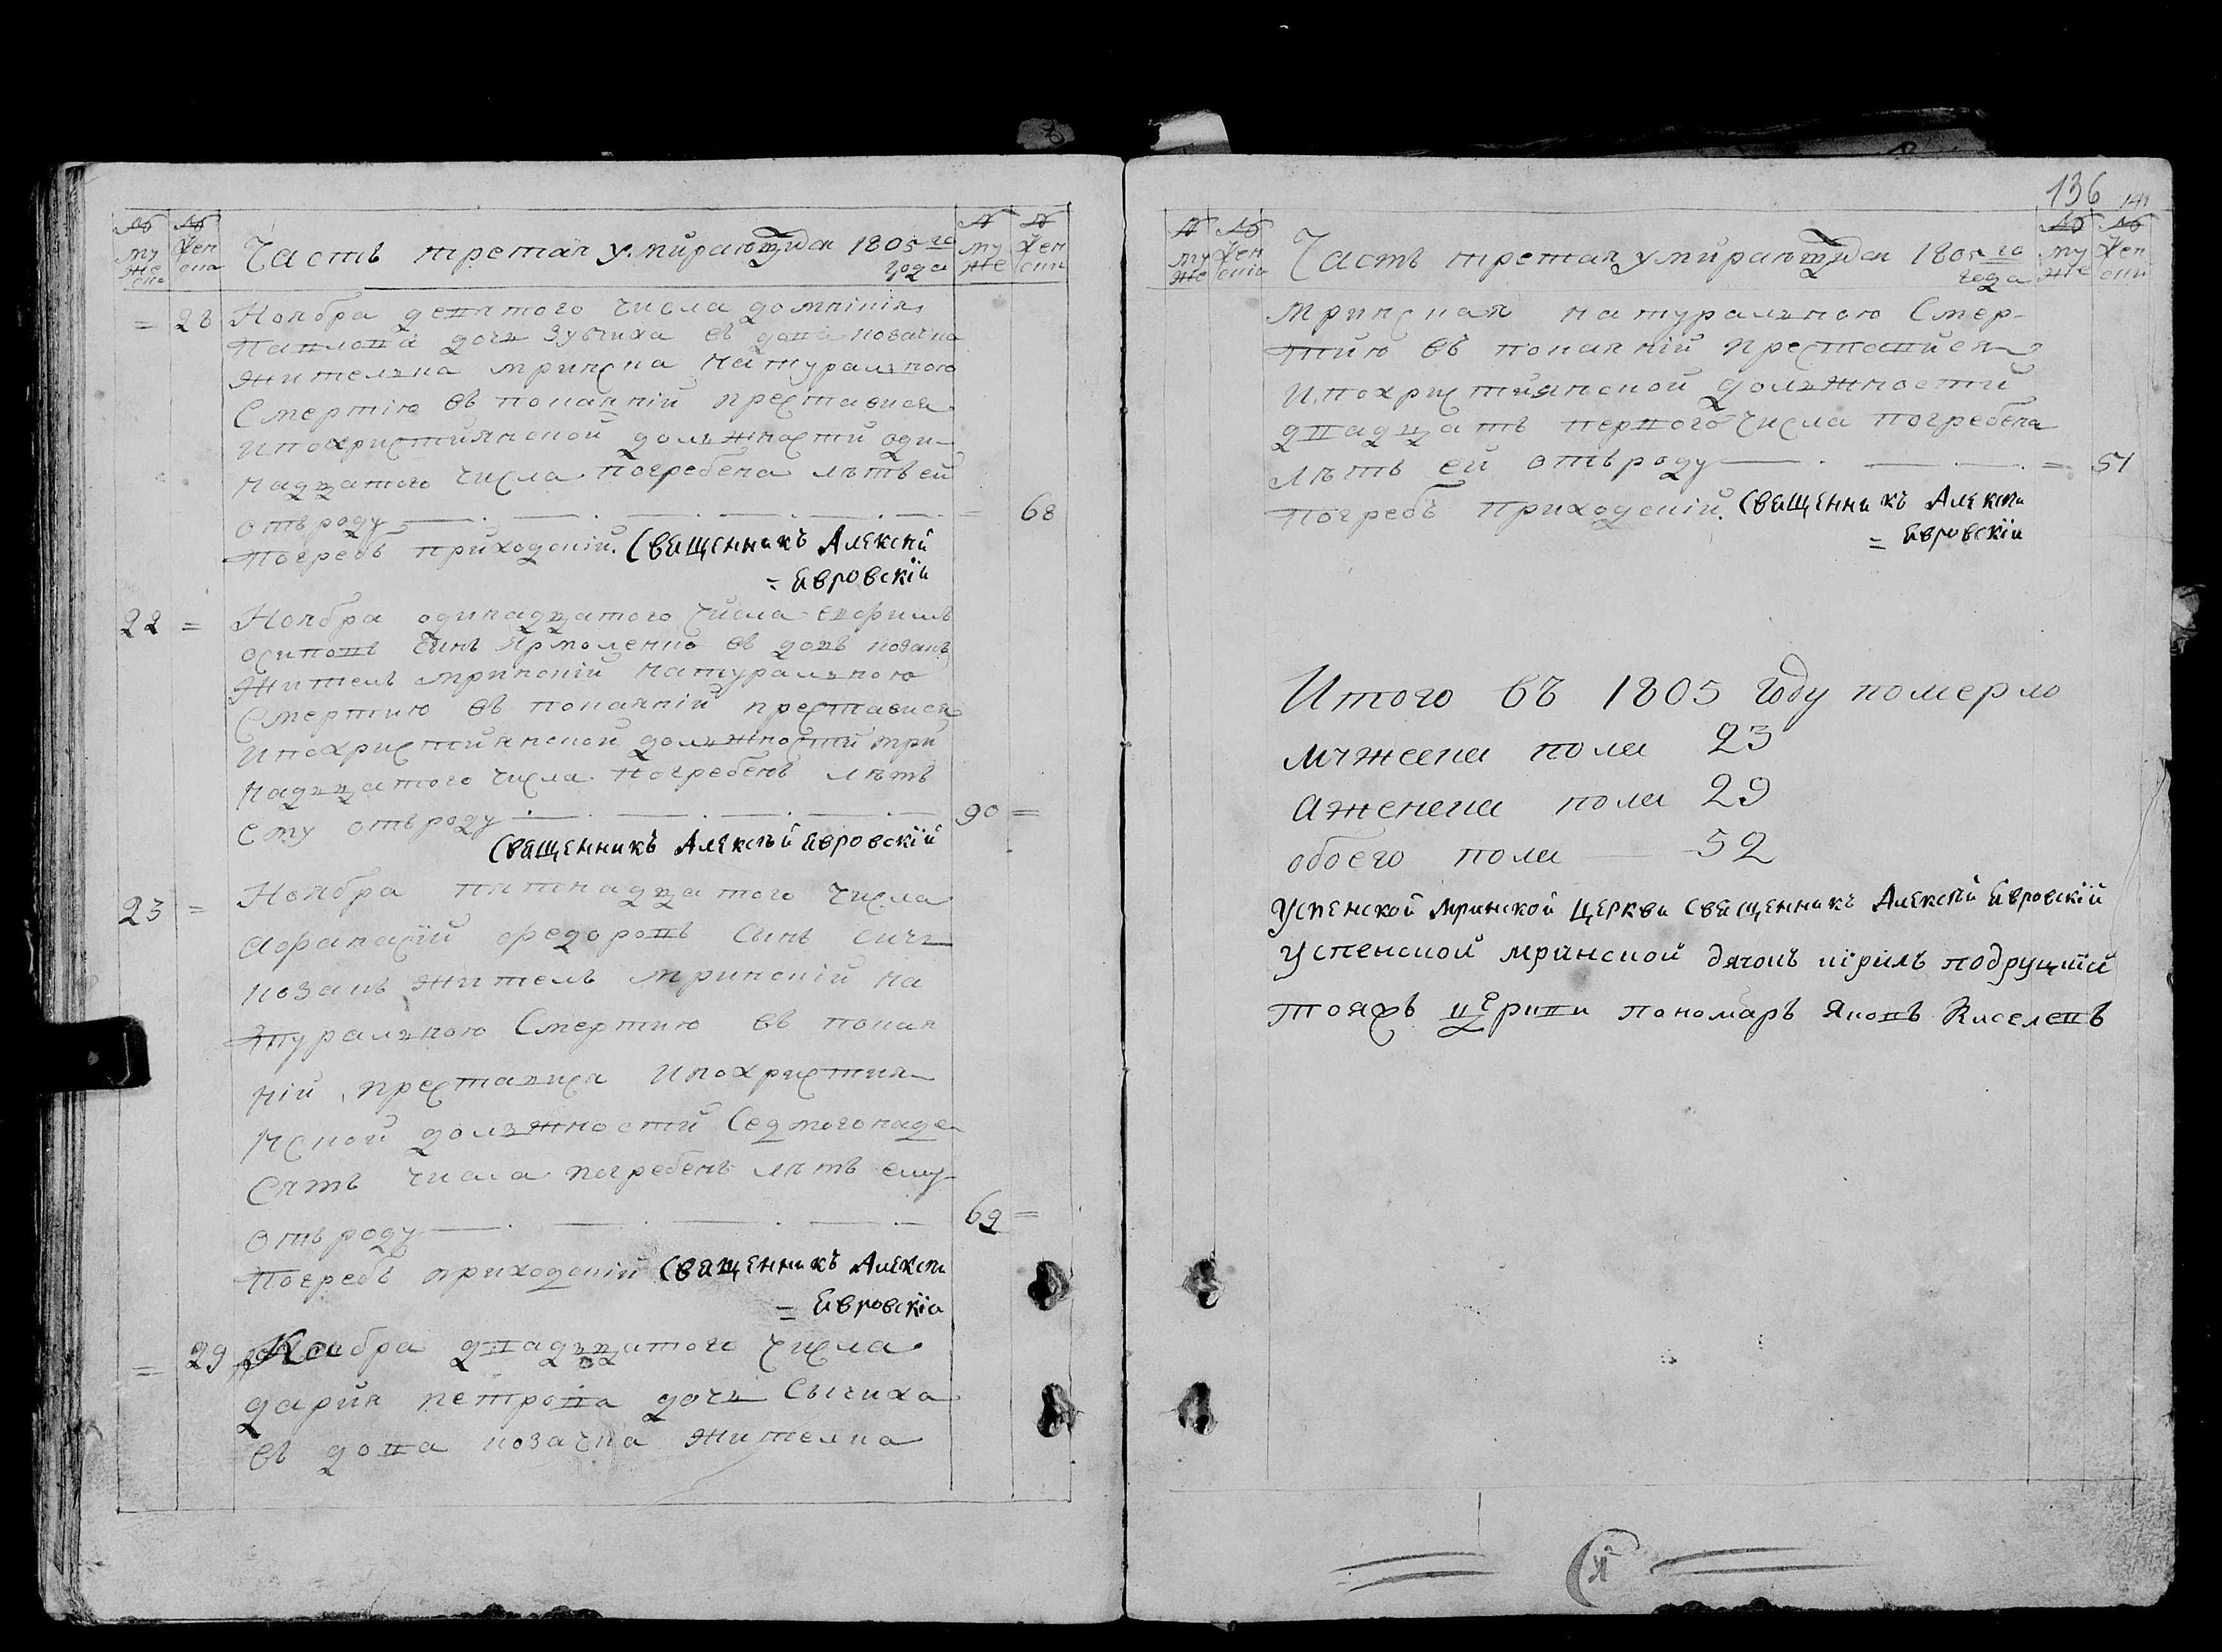 № муже ска
№ жен ска
Часть третая умирающихъ 1805 го года
№ му же
№ жен ски
= 28 Ноября девятого числа домникия
Павлова дочь Зубчиха въ дова козачка
жителька мринска натуралною
Смертію въ покаянiй преставися
ипохристиянской должности оди-
надцатого числа погребена лѣтъ ей
отъ роду = 68
Погребъ приходскiй. Священникъ Алексѣй
= Евровскїй
22 = Ноября одинадцатого числа Евфимъ
осиповъ синъ Ярмоленко въ довъ козакъ
житель мринскiй натуралною
Смертию въ покаянiй преставися
ипохристиянской должности три
надцатого числа погребенъ лѣтъ
ему отъ роду 90 =
Священникъ Алексѣй Евровскїй
23 = Ноября пятнадцатого числа
Афанасiй Федоровъ синъ Сичъ
козакъ житель мринскiй на
туралною Смертию въ покая
нiй преставися ипохристия-
нской должности Седмогонаде
сять числа погребенъ лѣтъ ему
отъ роду 69 =
Погребъ приходскiй Священникъ Алексѣй
= Евровскїй
= 29 Ноября двадцатого числа
дария петрова дочь Сычиха
въ дова козачка жителка
136
№ му же
№ жен скiа
Часть третая умирающихъ 1805 го года
№ му же
№ жен ски
мринская натуралною Смер-
тию въ покаянiй преставися
ипохристиянской должности
двадцать первого числа погребена
лѣтъ ей отъ роду = 51
Погребъ приходскiй. Священникъ Алексѣй
= Евровскїй
Итого въ 1805 году померло
мужеска пола 23
а женска пола 29
обоего пола 52
Успенской мринской Церкви Священникъ Алексѣй Евровскїй
Успенской мринской дячокъ кiрилъ подруцкий
тояжъ церкви пономаръ Яковъ Киселевъ